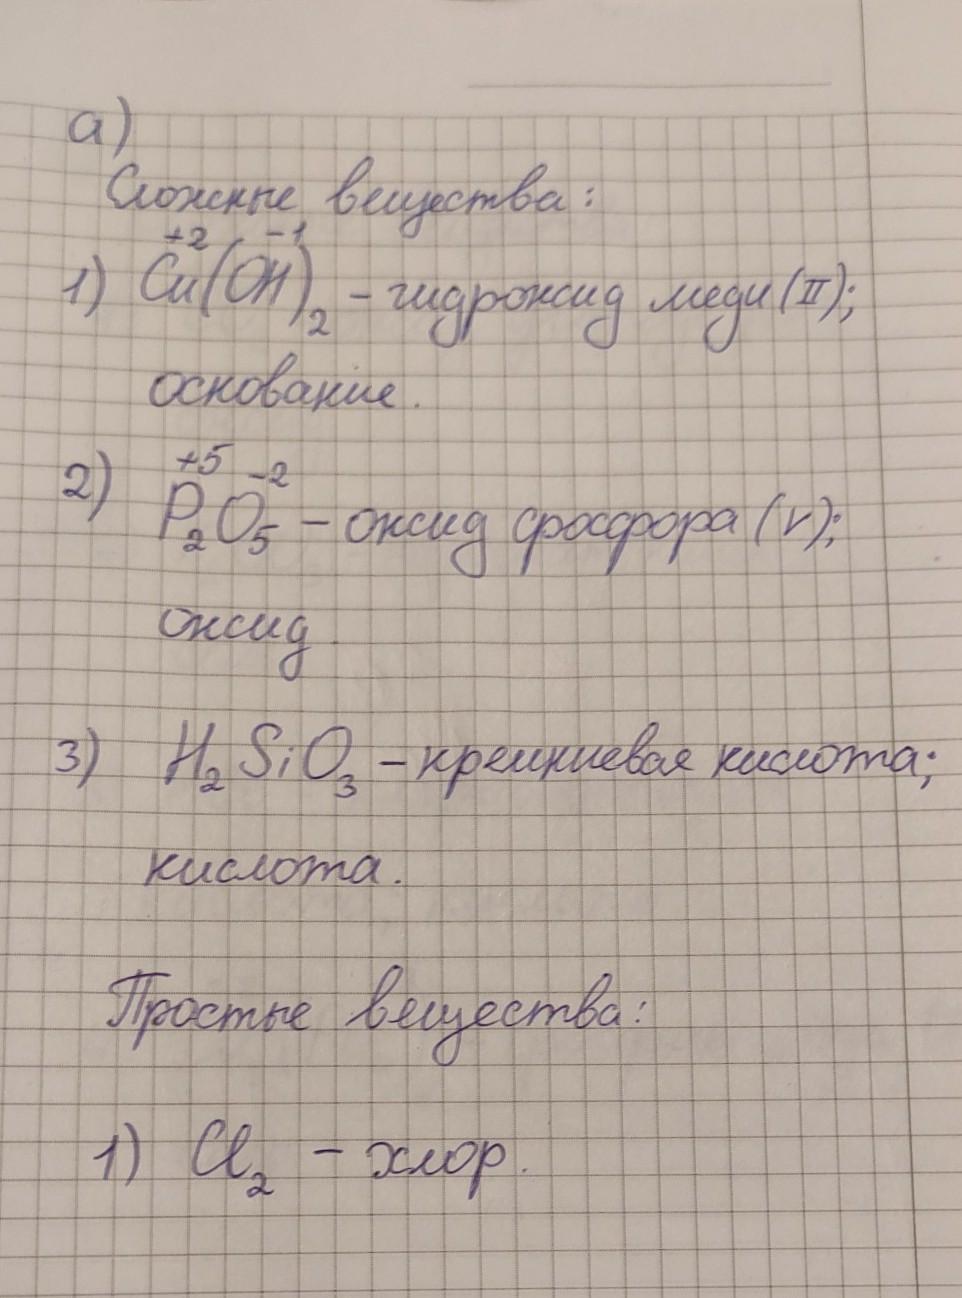 а)
Сложные вещества:
+2 -1
1) Cu(OH)₂ - гидроксид меди (II);
основание.
+5 -2
2) P₂O₅ - оксид фосфора (V);
оксид.
3) H₂SiO₃ - кремниевая кислота;
кислота.
Простые вещества:
1) Cl₂ - хлор.